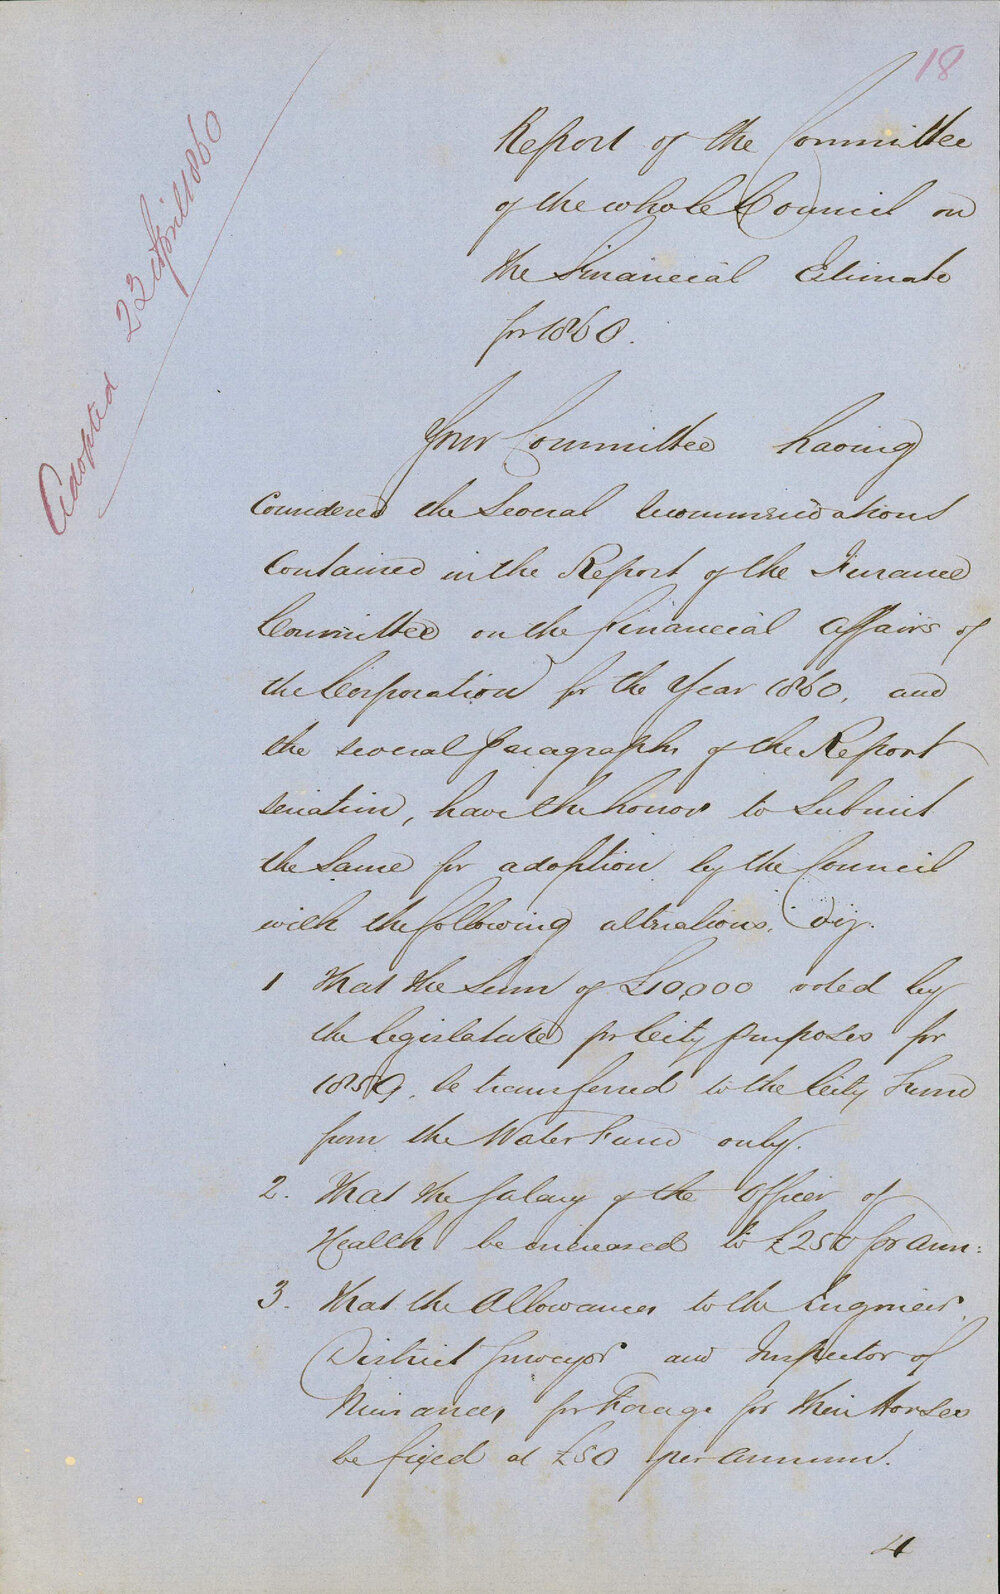 18
Adopted 23 April 1860
Report of the Committee
of the whole Council on
the Financial Estimate
for 1860.
Your Committee having
Considered the Several recommendations
Contained in the Report of the Finance
Committee on the financial affairs of
the Corporation for the Year 1860, and
the several paragraphs of the Report
seriatim, have the honor to Submit
the Same for adoption by the Council
with the following alterations, Viz.
1 That the Sum of £10,000 voted by
the legislature for City purposes for
1859, be transferred to the City Fund
from the Water Fund only.
2. That the Salary of the Officer of
Health be increased to £250 per Ann:
3. That the Allowances to the Engineer,
District Surveyor and Inspector of
Nuisances, for Forage for their Horses
be fixed at £50 per annum.
4